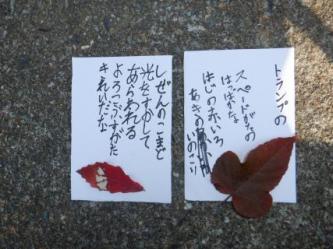 トランプの
スペードがたの
はっぱかな
はじの赤いろ
あきの
いのこり
しぜんのこまど
光をすかして
あらわれる
よろこぶすがた
キれいだな